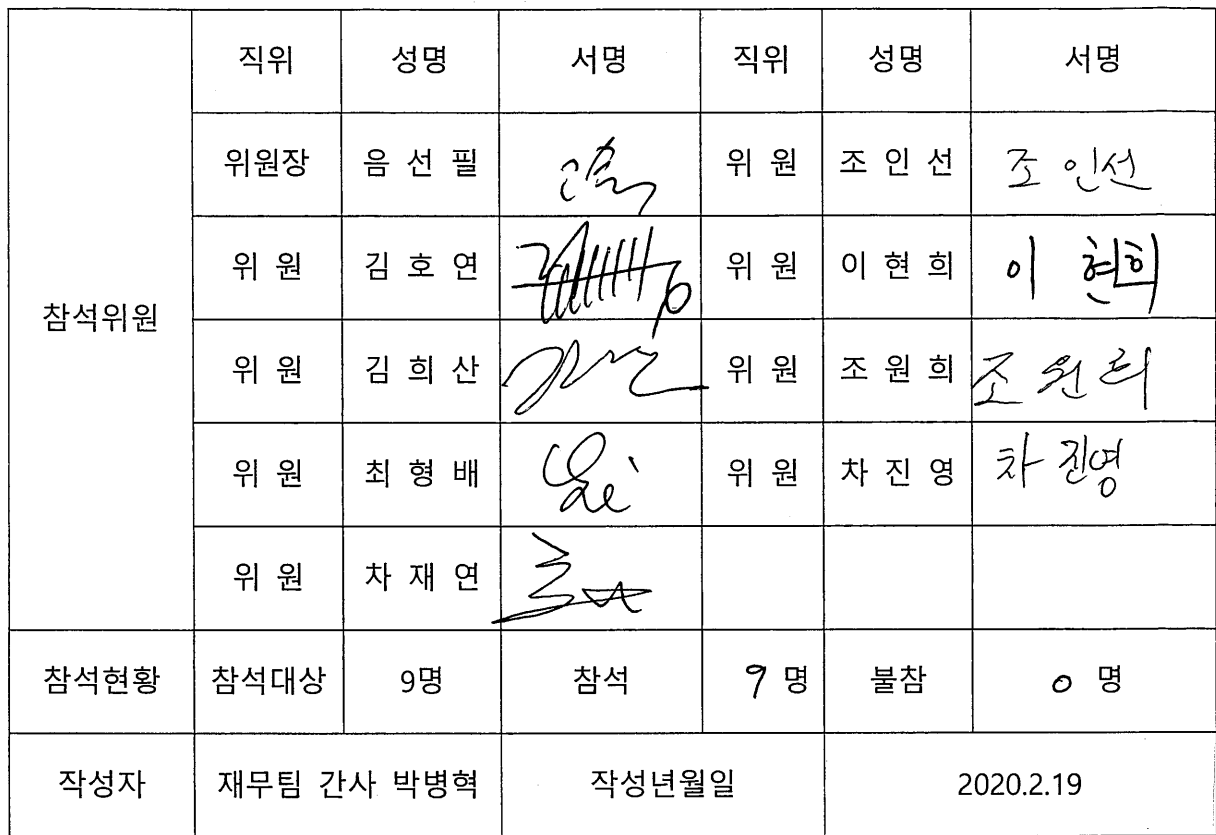 직위 성명 서명 직위 성명 서명
위원장 음 선 필 위 원 조 인 선 조 인선
위 원 김 호 연 위 원 이 현 희 이 현희
참석위원
위 원 김 희 산 위 원 조 원 희 조 원희
위 원 최 형 배 위 원 차 진 영 차 진영
위 원 차 재 연
참석현황 참석대상 9명 참석 9 명 불참 0 명
작성자 재무팀 간사 박병혁 작성년월일 2020.2.19